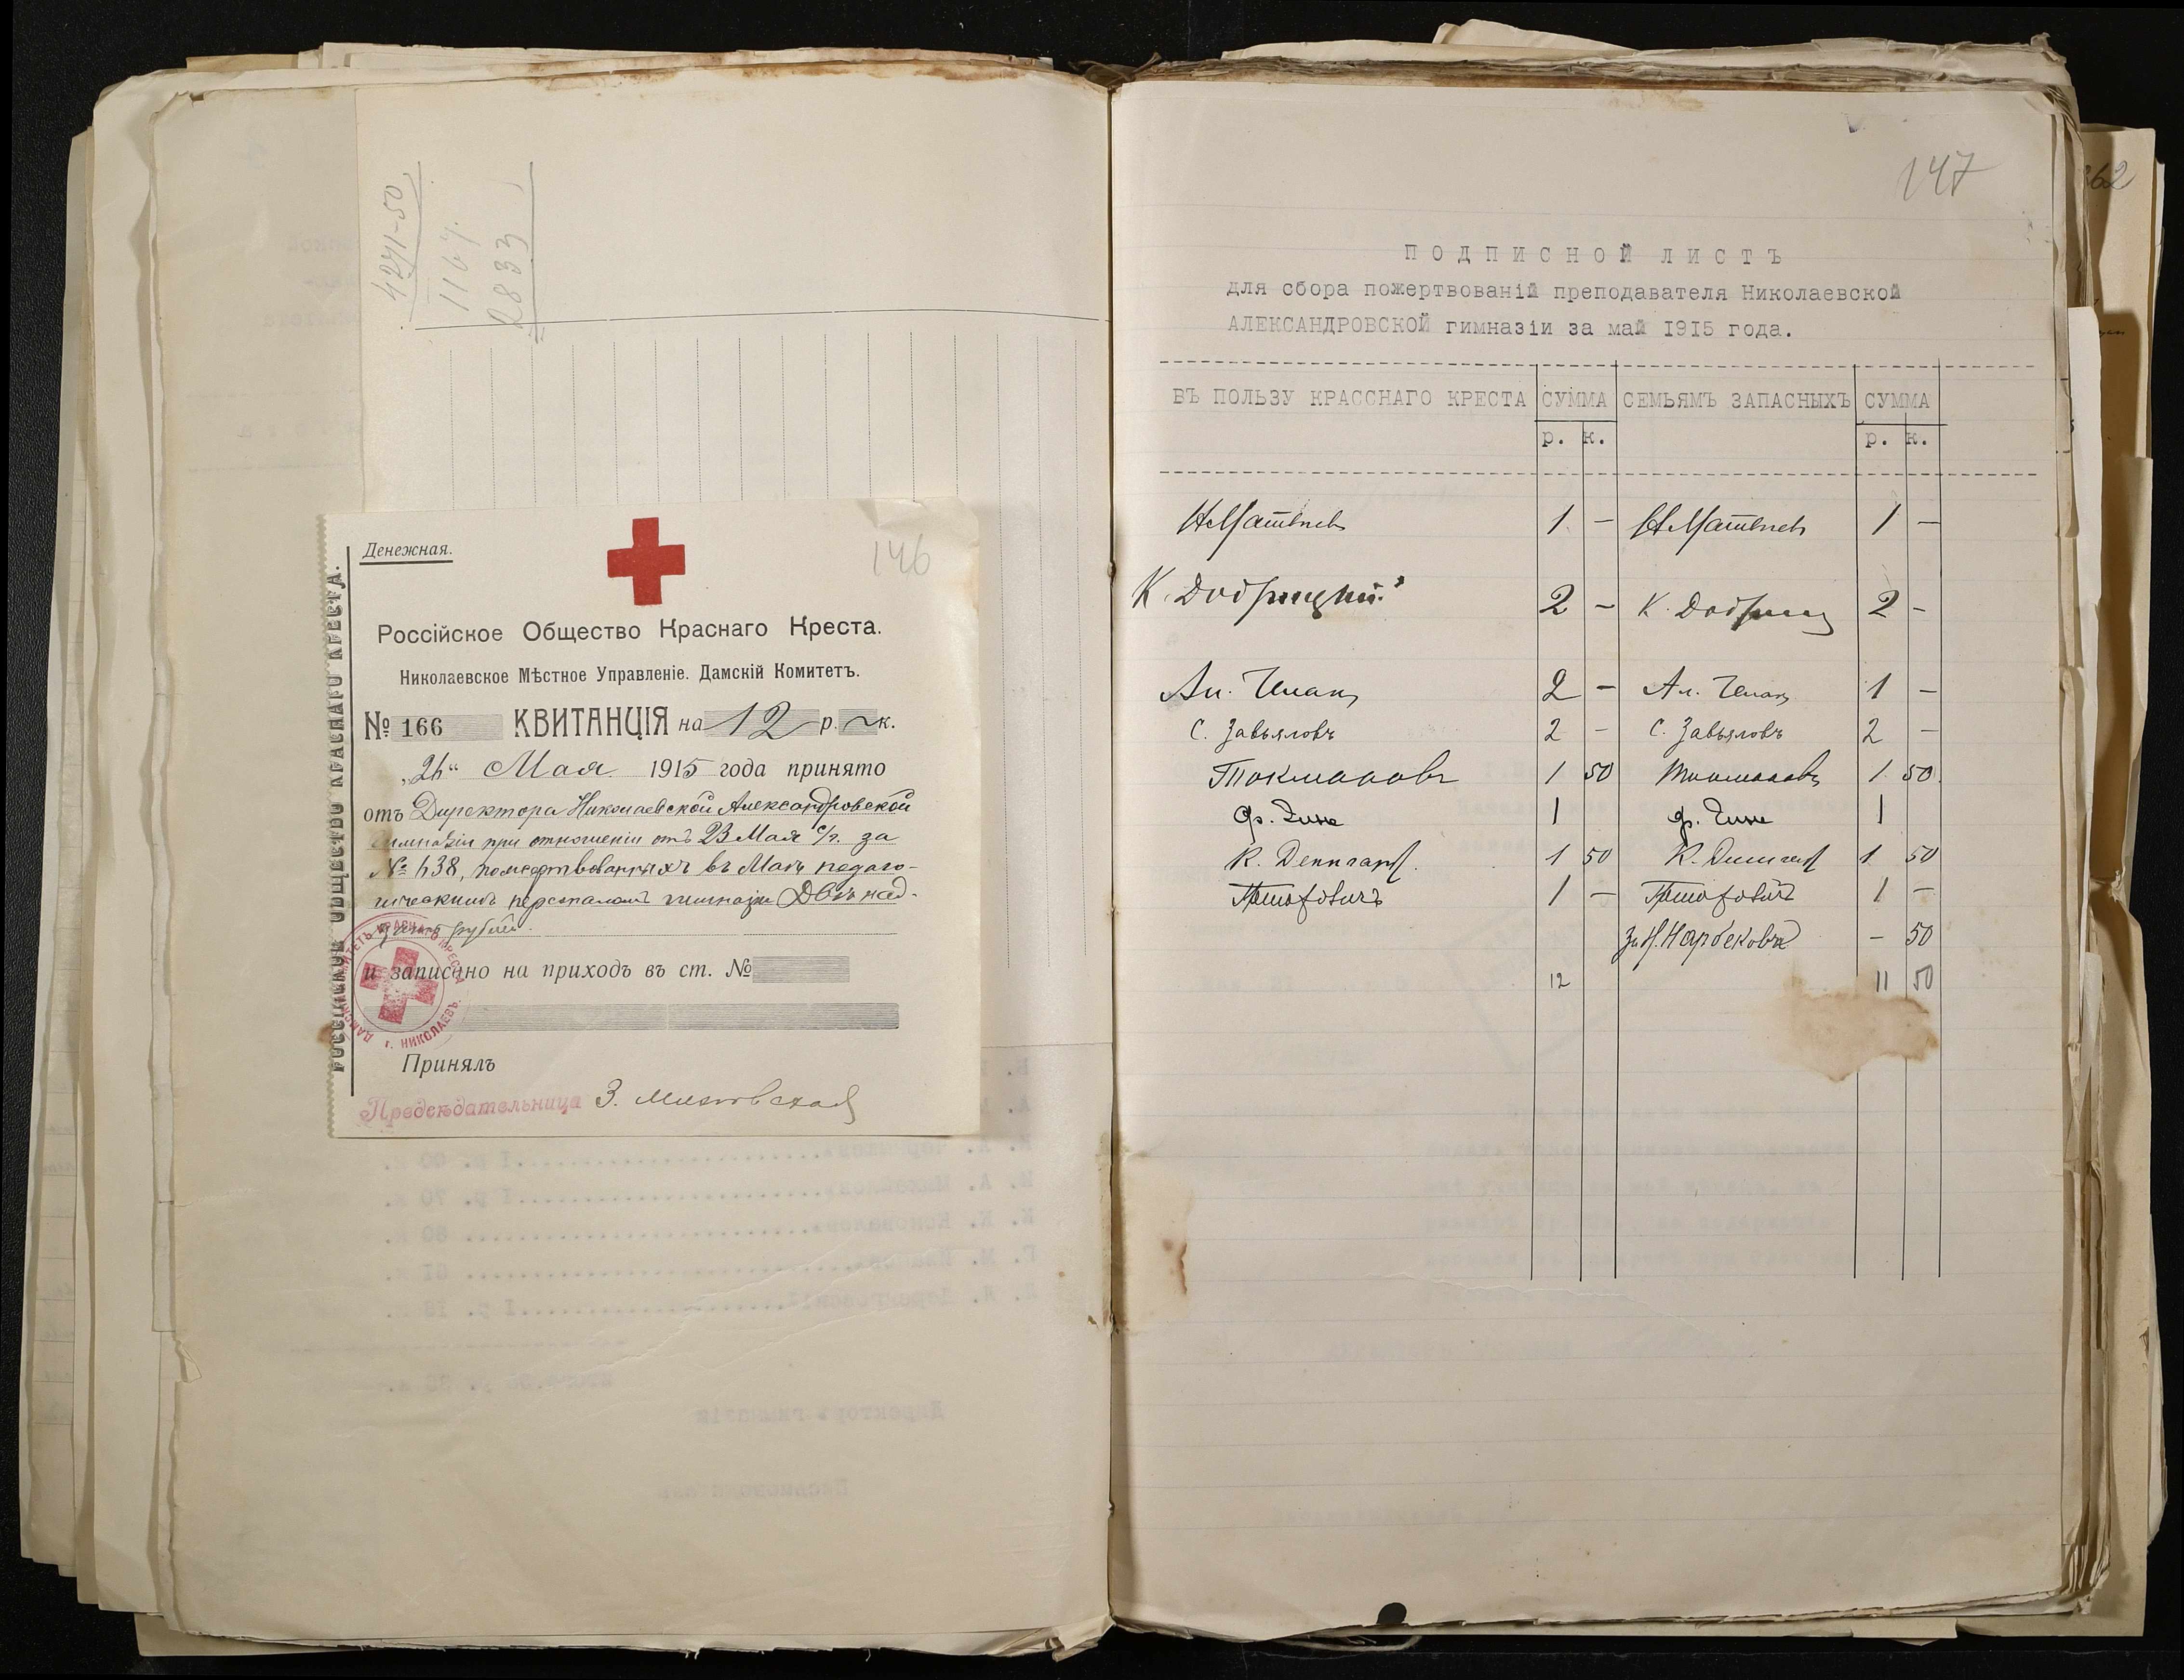 4271-50
1167.
2833
146
Денежная.
РОССІЙСКОЕ ОБЩЕСТВО КРАСНАГО КРЕСТА.
Россійское Общество Краснаго Креста.
Николаевское Мѣстное Управленіе. Дамскій Комитетъ.
№ 166 КВИТАНЦІЯ на 12 р. — к.
„26“ Мая 1915 года принято
отъ Директора Николаевской Александровской
гимназіи при отношеніи отъ 23 Мая с/г. за
№ 638, пожертвованныхъ въ Маѣ педаго-
гическимъ персоналомъ гимназіи Двѣнад-
цать рублей
и записано на приходъ въ ст. №
г. НИКОЛАЕВЪ.
Принялъ
Предсѣдательница З.
147
362
ПОДПИСНОЙ ЛИСТЪ
для сбора пожертвованій преподавателя Николаевской
АЛЕКСАНДРОВСКОЙ гимназіи за май 1915 года.
ВЪ ПОЛЬЗУ КРАССНАГО КРЕСТА СУММА СЕМЬЯМЪ ЗАПАСНЫХЪ СУММА
р. к. р. к.
Матвѣевъ 1 — Матвѣевъ 1 —
К. 2 — К. 2 —
Ал. 2 — Ал. 1 —
С. Завьяловъ 2 — С. Завьяловъ 2 —
Токмаковъ 1 50 Токмаковъ 1 50
Ф. 1 Ф. 1
К. 1 50 К. 1 50
1 — 1 —
За Н. Нарбековъ — 50
12 11 50